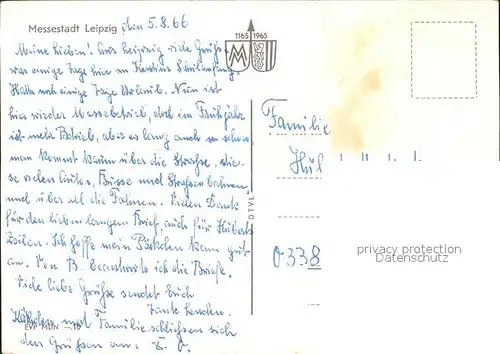 Messestadt Leipzig, den 5.8.66
1165 1965
Meine Lieben! Aus Leipzig viele Grüße
war einige Tage hier zu
Hatte noch einige Tage Urlaub. Nun ist
hier wieder Messebetrieb, doch im Frühjahr
ist mehr Betrieb, aber es langt auch so schon
man kommt kaum über die Straße, die-
se vielen Autos, Busse und Straßenbahnen
und über all die Fahnen. Vielen Dank
für den lieben langen Brief, auch für Huberts
Zeilen. Ich hoffe mein Päckchen kam gut
an. Von B. beantworte ich die Briefe.
Viele liebe Grüße sendet Euch
Tante
und Familie schließen sich
den Grüßen an.
Familie
0338
privacy protection
Datenschutz